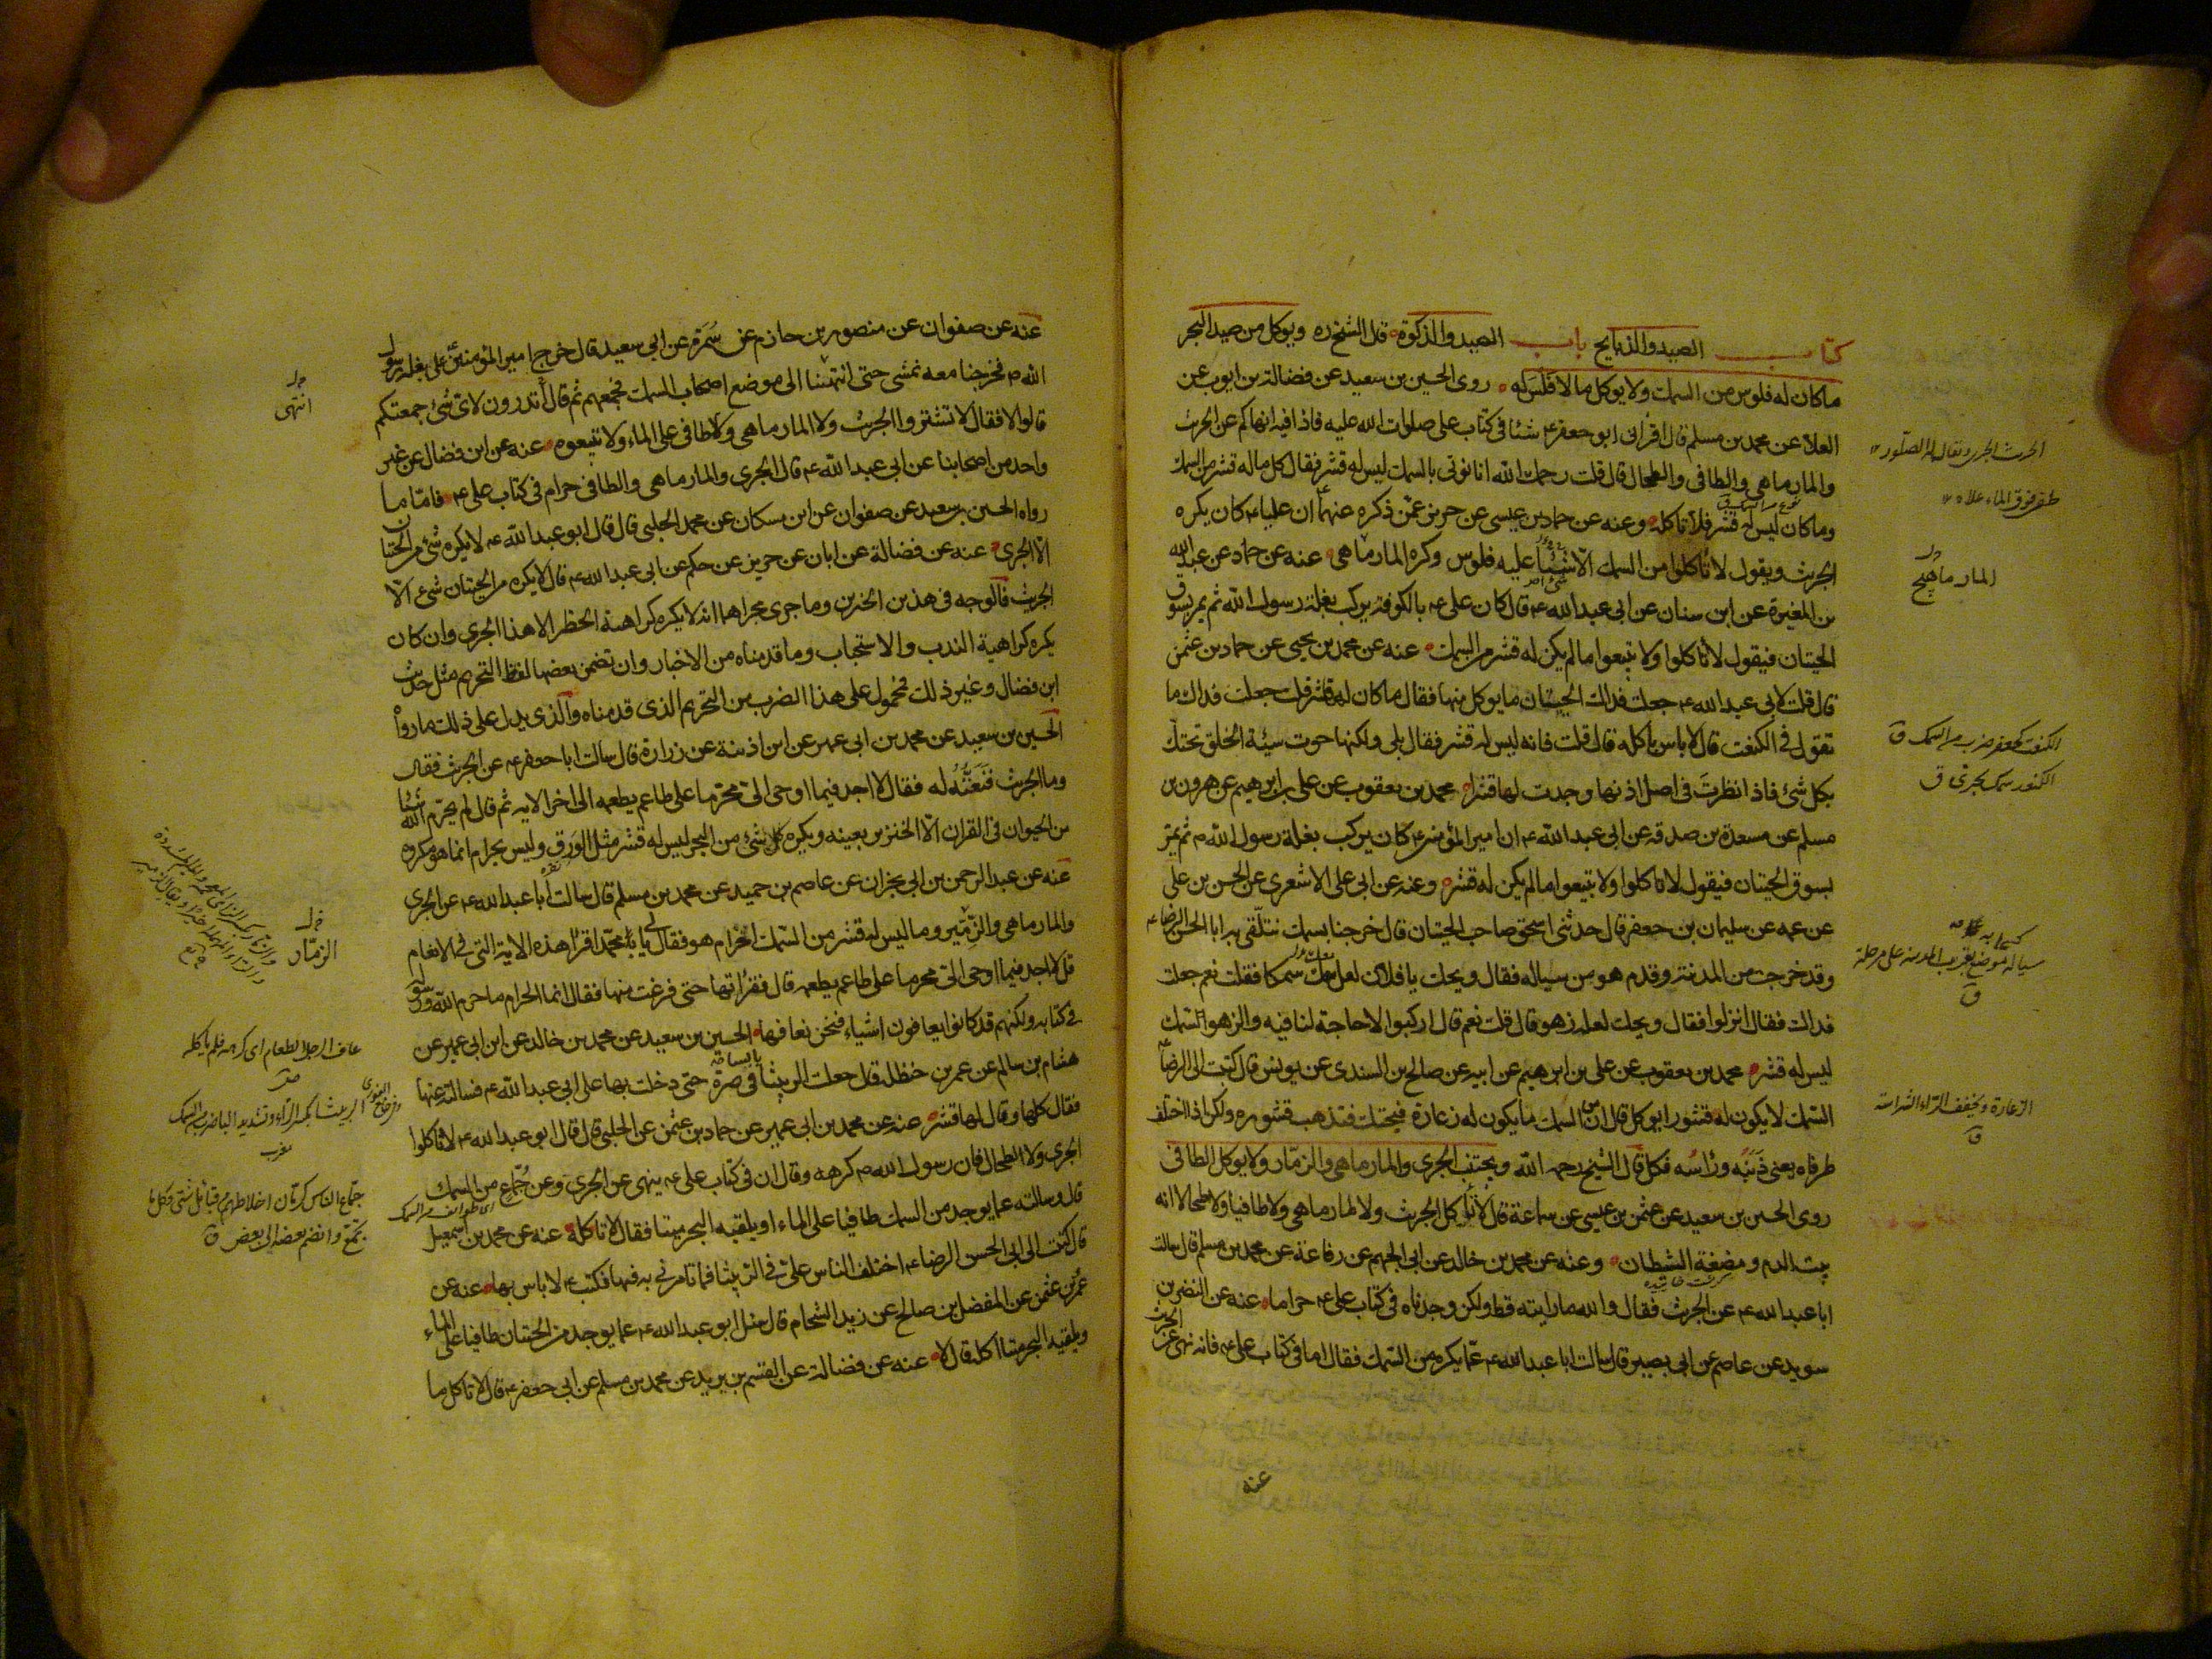 كتاب الصيد والذبايح باب الصيد والذكوة قال الشيخ ره ويوكل من صيد البحر
ماكان له فلوس من السمك ولا يوكل مالا فلس له روى الحسين بن سعيد عن فضالة بن ايوب عن
العلا عن محمد بن مسلم قال اقرانى ابو جعفر ع شيئا فى كتاب على صلوات الله عليه فاذا فيه انهاكم عن الجريث
والمار ماهى والطافى والطحال قال قلت رحمك الله انا نوتى بالسمك ليس له قشر فقال كل ماله قشر من السمك
وماكان ليس له قشر فلا تاكله وعنه عن حماد بن عيسى عن حريز عمن ذكره عنهما ان عليا ع كان يكره
الجريث ويقول لا تاكلوا من السمك الا شيئا عليه فلوس وكره المار ماهى عنه عن حماد عن عبد الله
بن المغيرة عن ابن سنان عن ابى عبد الله ع قال كان على ع بالكوفة يركب بغلة رسول الله ثم يمر بسوق
الحيتان فيقول لا تاكلوا ولا تبيعوا مالم يكن له قشر من السمك عنه عن محمد بن يحيى عن حماد بن عثمن
قال قلت لابى عبد الله ع جعلت فداك الحيتان مايوكل منها فقال ماكان له قشر قلت جعلت فداك ما
تقول فى الكنعت قال لا باس باكله قال قلت فانه ليس له قشر فقال بلى ولكنها حوت سيئة الخلق تحتك
بكل شئ فاذا نظرت فى اصل اذنها وجدت لها قشرا محمد بن يعقوب عن على بن ابرهيم عن هرون بن
مسلم عن مسعدة بن صدقه عن ابى عبد الله ع ان امير المؤمنين ع كان يركب بغلة رسول الله ص ثم يمر
بسوق الحيتان فيقول لا تاكلوا ولا تبيعوا مالم يكن له قشر وعنه عن ابى على الاشعرى عن الحسن بن على
عن عمه عن سليمان بن جعفر قال حدثنى اسحق صاحب الحيتان قال خرجنا بسمك نتلقى به ابا الحسن الرضا ع
وقد خرجت من المدينة وقدم هو من سياله فقال ويحك يا فلان لعل معك سمكا فقلت نعم جعلت
فداك فقال انزلوا فقال ويحك لعله زهو قال قلت نعم قال اركبوا لا حاجة لنا فيه والزهو السمك
ليس له قشر محمد بن يعقوب عن على بن ابرهيم عن ابيه عن صالح بن السندى عن يونس قال كتبت الى الرضا ع
السمك لا يكون له قشور ايوكل قال ان من السمك مايكون له زعارة فيحتك فتذهب قشوره ولكن اذا اختلف
طرفاه يعنى ذنبه وراسه فكل قال الشيخ رحمه الله ويجتنب الجرى والمار ماهى والزمار ولا يوكل الطافى
روى الحسين بن سعيد عن عثمن بن عيسى عن سماعة قال لا تاكل الجريث ولا المار ماهى ولا طافيا ولا طحالا لانه
بيت الدم ومضغة الشيطان وعنه عن محمد بن خالد عن ابى الجهم عن رفاعة عن محمد بن مسلم قال سالت
ابا عبد الله ع عن الجريث فقال والله ما رايته قط ولكن وجدناه فى كتاب على ع حراما عنه عن النضر بن
سويد عن عاصم عن ابى بصير قال سالت ابا عبد الله ع عما يكره من السمك فقال اما فى كتاب على ع فانه نهى عن الجريث
عنه
طفى فوق الماء علاه
المار ماهيج
الكنعت كجعفر ضرب من السمك ق
سياله موضع بقرب المدينة على مرحلة
ق
الزعارة وتخفف الراء الشراسة
ق
عنه عن صفوان عن منصور بن حازم عن سمرة عن ابى سعيد قال خرج امير المؤمنين على بغلة رسول
الله ص فخرجنا معه نمشى حتى انتهينا الى موضع اصحاب السمك فجمعهم ثم قال أتدرون لاى شئ جمعتكم
قالوا لا فقال لا تشتروا الجريث ولا المار ماهى ولا طافى على الماء ولا تبيعوه عنه عن ابن فضال عن غير
واحد من اصحابنا عن ابى عبد الله ع قال الجرى والمار ماهى والطافى حرام فى كتاب على ع فاما ما
رواه الحسين بن سعيد عن صفوان عن ابن مسكان عن محمد الحلبى قال قال ابو عبد الله ع لا يكره شئ من الحيتان
الا الجرى عنه عن فضالة عن ابان عن حريز عن حكم عن ابى عبد الله ع قال لا يكره من الحيتان شئ الا
الجريث فالوجه فى هذين الخبرين وما جرى مجراهما انه لا يكره كراهية الحظر الا هذا الجرى وان كان
يكره كراهية الندب والاستحباب وما قدمناه من الاخبار وان تضمن بعضها لفظ التحريم مثل حديث
ابن فضال وغير ذلك فمحمول على هذا الضرب من التحريم الذى قدمناه والذى يدل على ذلك مارواه
الحسين بن سعيد عن محمد بن ابى عمير عن ابن اذينة عن زرارة قال سالت ابا جعفر ع عن الجريث فقال
وما الجريث فنعته له فقال لا اجد فيما اوحى الى محرما على طاعم يطعمه الى اخر الاية ثم قال لم يحرم الله شيئا
من الحيوان فى القران الا الخنزير بعينه ويكره كل شئ من البحر ليس له قشر مثل الورق وليس بحرام انما هو مكروه
عنه عن عبد الرحمن بن ابى نجران عن عاصم بن حميد عن محمد بن مسلم قال سالت ابا عبد الله ع عن الجرى
والمار ماهى والزمير وما ليس له قشر من السمك احرام هو فقال لى يا محمد اقرا هذه الاية التى فى الانعام
قل لا اجد فيما اوحى الى محرما على طاعم يطعمه قال فقراتها حتى فرغت منها فقال انما الحرام ما حرم الله ورسوله
فى كتابه ولكنهم قد كانوا يعافون اشياء فنحن نعافها الحسين بن سعيد عن محمد بن خالد عن ابن ابى عمير عن
هشام بن سالم عن عمر بن حنظله قال حملت الربيثا فى صرة حتى دخلت بها على ابى عبد الله ع فسالته عنها
فقال كلها وقال لها قشر عنه عن محمد بن ابى عمير عن حماد بن عثمن عن الحلبى قال قال ابو عبد الله ع لا تاكلوا
الجرى ولا الطحال فان رسول الله ص كرهه وقال ان فى كتاب على ع ينهى عن الجرى وعن جماع من السمك
قال وسالته عما يوجد من السمك طافيا على الماء او يلقيه البحر ميتا فقال لا تاكله عنه عن محمد بن اسمعيل
قال كتبت الى ابى الحسن الرضا ع اختلف الناس على فى الربيثا فما تامرنى به فيها فكتب ع لا باس بها عنه عن
عمر بن عثمن عن المفضل بن صالح عن زيد الشحام قال سئل ابو عبد الله ع عما يوجد من الحيتان طافيا على الماء
ويلقيه البحر ميتا اكله قال لا عنه عن فضالة عن القسم بن بريد عن محمد بن مسلم عن ابى جعفر ع قال لا تاكل ما
انتهى
الزمار
عاف الرجل الطعام اى كرهه فلم ياكله
الربيثا بكسر الراء وتشديد البا ضرب من السمك
جماع الناس كرمان اخلاطهم من قبائل شتى وكل ما
تجمع وانضم بعضه الى بعض ق